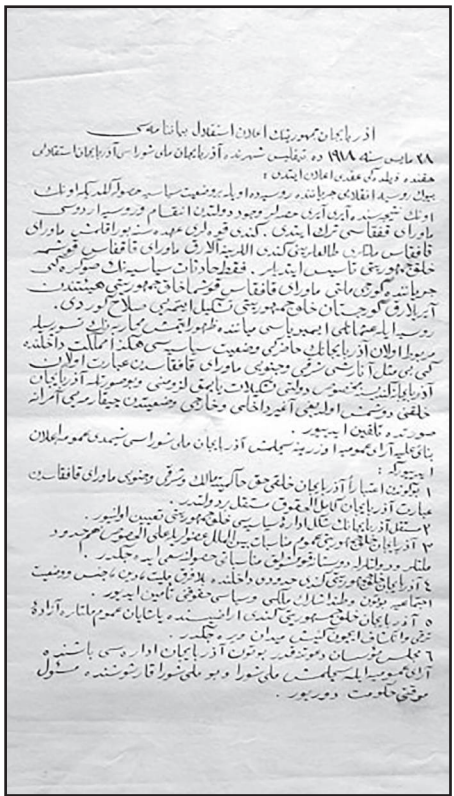 آذربایجان جمهوریتنك اعلان استقلال بیاننامه‌سی
۲۸ مایس سنه ۱۹۱۸ ده تیفلیس شهرنده آذربایجان ملی شوراسی آذربایجان استقلالی
حقنده ذیلده‌کی عقدی اعلان ایتدی :
بیوك روسیه انقلابی جریاننده روسیه‌ده اویله بر وضعیت سیاسیه حصوله کلدی که اونك
نتیجه‌سنده آیری آیری عضولر وجود دولتدن روس اردوسی
ماورای قفقاسی ترك ایتدی . کندی قوای
قافقاس ملتلری طالعلرینی کندی اللرینه آلارق ماورای قافقاس قوشمه
خلق جمهوریتی تأسیس ایتدیلر . فقط حادثات سیاسیه‌نك صوکره‌کی
جریاننده گورجی ملتی ماورای قافقاس قوشما خلق جمهوریتی هیئتندن
آیریلارق گورجستان خلق جمهوریتی تشکیل ایتمه‌یی صلاح گوردی .
روسیه ایله عثمانلی ایمپریاسی میاننده ظهور ایتمش محاربه‌نك تسویه‌سیله
مربوط اولان آذربایجانك حاضرکی وضعیت سیاسیه‌سی مملکت داخلنده‌کی
آنارشی شرقی و جنوبی ماورای قافقاسدن عبارت اولان
آذربایجانه دولتی تشکیلات یاپمق لزومنی
خلقی دوشمش اولدیغی آغیر داخلی و خارجی وضعیتدن چیقارمه‌یی آمرانه
صورتده تلقین ایدییور .
بناءً علیه آرای عمومیه اوزرینه سچیلمش آذربایجان ملی شوراسی شیمدی عمومه اعلان
ایدییور که :
۱ بوگوندن اعتباراً آذربایجان خلقی حق حاکمیته مالك و شرقی و جنوبی ماورای قافقاسدن
عبارت آذربایجان کامل الحقوق مستقل بر دولتدر .
۲ مستقل آذربایجانك شکل اداره سیاسیسی خلق جمهوریتی تعیین اولنیور .
۳ آذربایجان خلق جمهوریتی عموم بین الملل علی الخصوص همحدود
ملتلر و دولتلرله مناسباتی حصولنه سعی ایده‌جکدر .
۴ آذربایجان خلق جمهوریتی کندی حدودی داخلنده بلا فرق ملیت جنس و وضعیت
اجتماعیه بوتون وطنداشلرك ملکی و سیاسی حقوقنی تأمین ایدیور .
۵ آذربایجان خلق جمهوریتی کندی اراضیسنده یاشایان عموم ملتلره آزاده
ترقی و انکشاف ایچون گنیش میدان ویره‌جکدر .
۶ مجلس مؤسسان قدر بوتون آذربایجان اداره‌سی باشنده
آرای عمومیه ایله سچیلمش ملی شورا و بو ملی شورا قارشوسنده مسئول
موقتی حکومت دورویور .